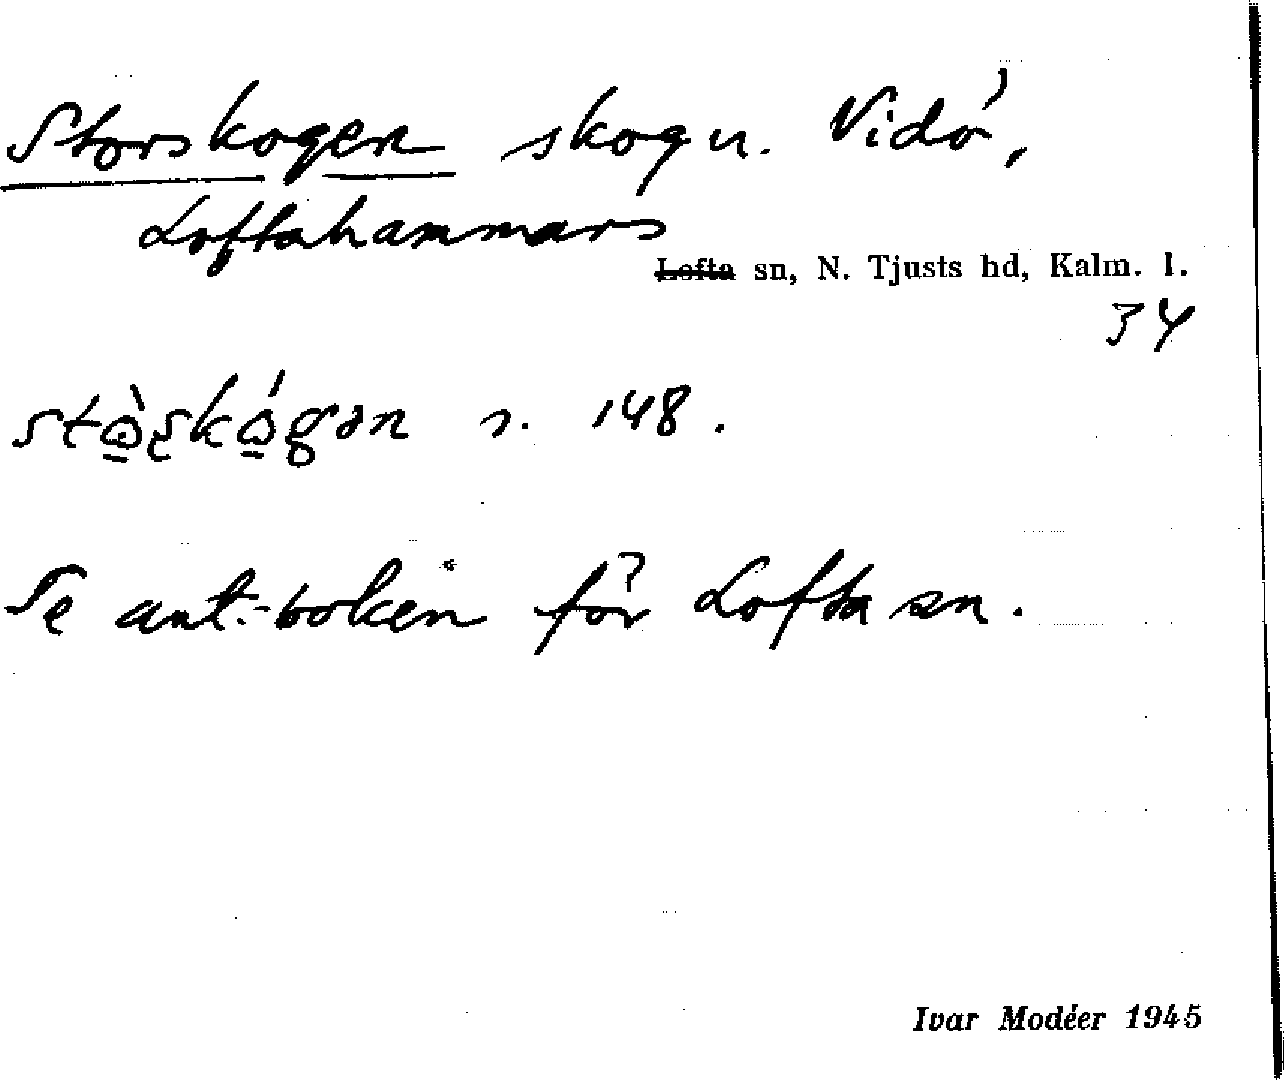 Storskogen skog n. Vidö,
Loftahammars
Lofta sn, N. Tjusts hd, Kalm. l.
34
s. 148.
Se ant.-boken för Lofta sn.
Ivar Modéer 1945